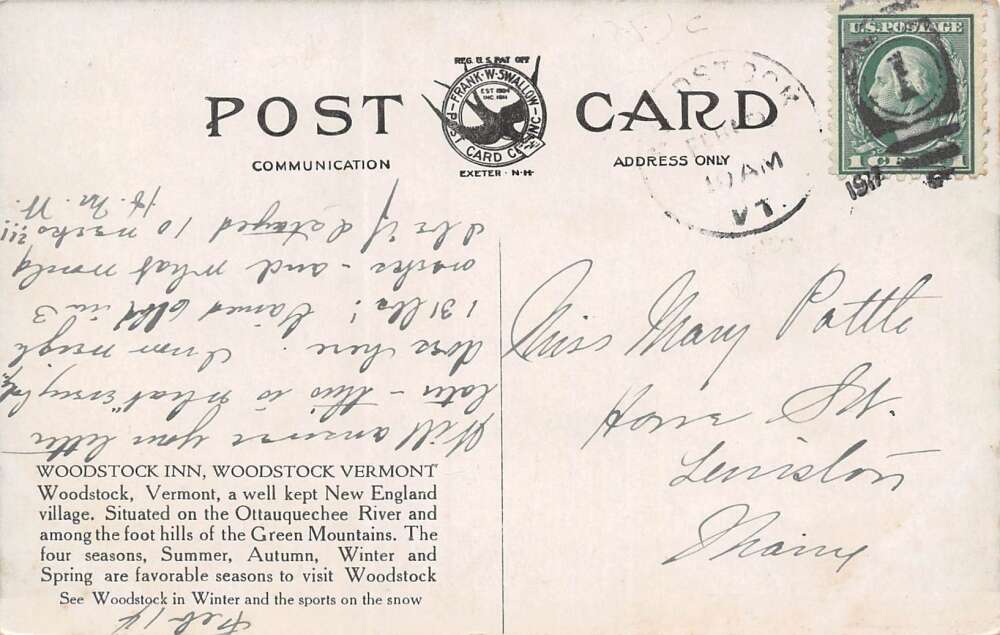 POST CARD
REG. U.S. PAT OFF
FRANK·W·SWALLOW
EST 1904
INC 1911
POST CARD CO. INC
EXETER · N·H
COMMUNICATION
ADDRESS ONLY
U.S. POSTAGE
1 CENT 1
10 AM
VT.
1917
1
Miss Mary Pottle
Horne St.
Lewiston
Maine
Feb 14
Will answer your letter
later - this is what "everybody
does here. I now weigh
131 lbs! Gained 6 lbs in 3
weeks - and what would
I be if I stayed 10 weeks
H. M. W.
WOODSTOCK INN, WOODSTOCK VERMONT
Woodstock, Vermont, a well kept New England
village. Situated on the Ottauquechee River and
among the foot hills of the Green Mountains. The
four seasons, Summer, Autumn, Winter and
Spring are favorable seasons to visit Woodstock
See Woodstock in Winter and the sports on the snow